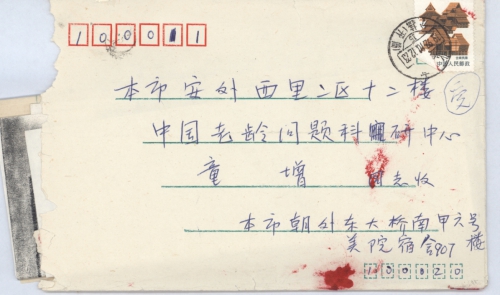 100011
中国人民邮政
本市安外西里二区十二楼
中国老龄问题科研中心
童增 同志收
本市朝外东大桥南甲六号
美院宿舍907楼
100020